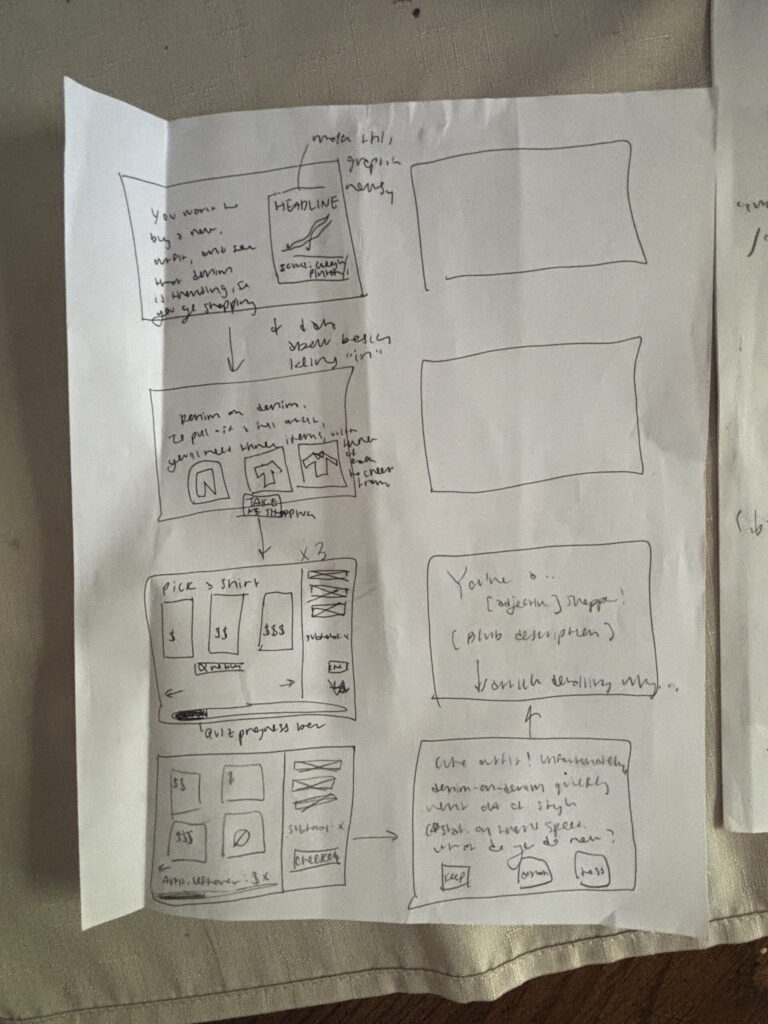 make this
graphic
newsy
You want to
buy a new
outfit, and see
that denim
is trending, so
you go shopping
HEADLINE
"in"
Denim on denim.
To pull off a full
you'll need three items, with
three
of
each
to choose
from
TAKE
ME Shopping
x3
Pick a Shirt
$
$$
$$$
subtotal: x
quiz progress bar
$$
$
$$$
Ø
subtotal: x
Amt. leftover: $ x
cute outfit! Unfortunately,
denim-on-denim quickly
went out of style
(#stat. on trend speed.
what do you do now?
keep
donate
toss
You're a..
[adjective] shopper!
[Blurb description]
article detailing why...